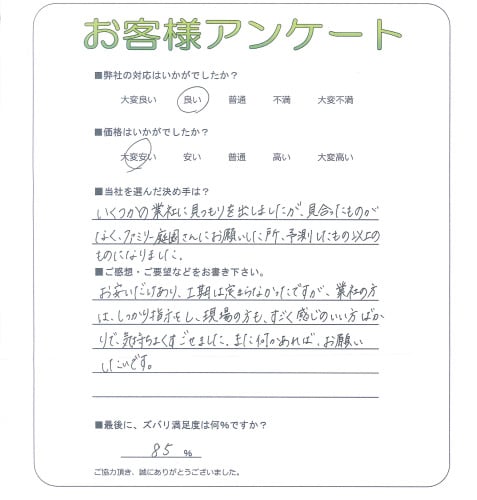 お客様アンケート
■弊社の対応はいかがでしたか？
大変良い 良い 普通 不満 大変不満
■価格はいかがでしたか？
大変安い 安い 普通 高い 大変高い
■当社を選んだ決め手は？
いくつかの業社に見つもりを出しましたが、見合ったものが
なく、ファミリー庭園さんにお願いした所、予測したもの以上の
ものになりました。
■ご感想・ご要望などをお書き下さい。
お安いだけあり、工期は定まらなかったですが、業社の方
は、しっかり指示をし、現場の方も、すごく感じのいい方ばか
りで、気持ちよくすごせました。また何かあれば、お願い
したいです。
■最後に、ズバリ満足度は何%ですか？
85 %
ご協力頂き、誠にありがとうございました。